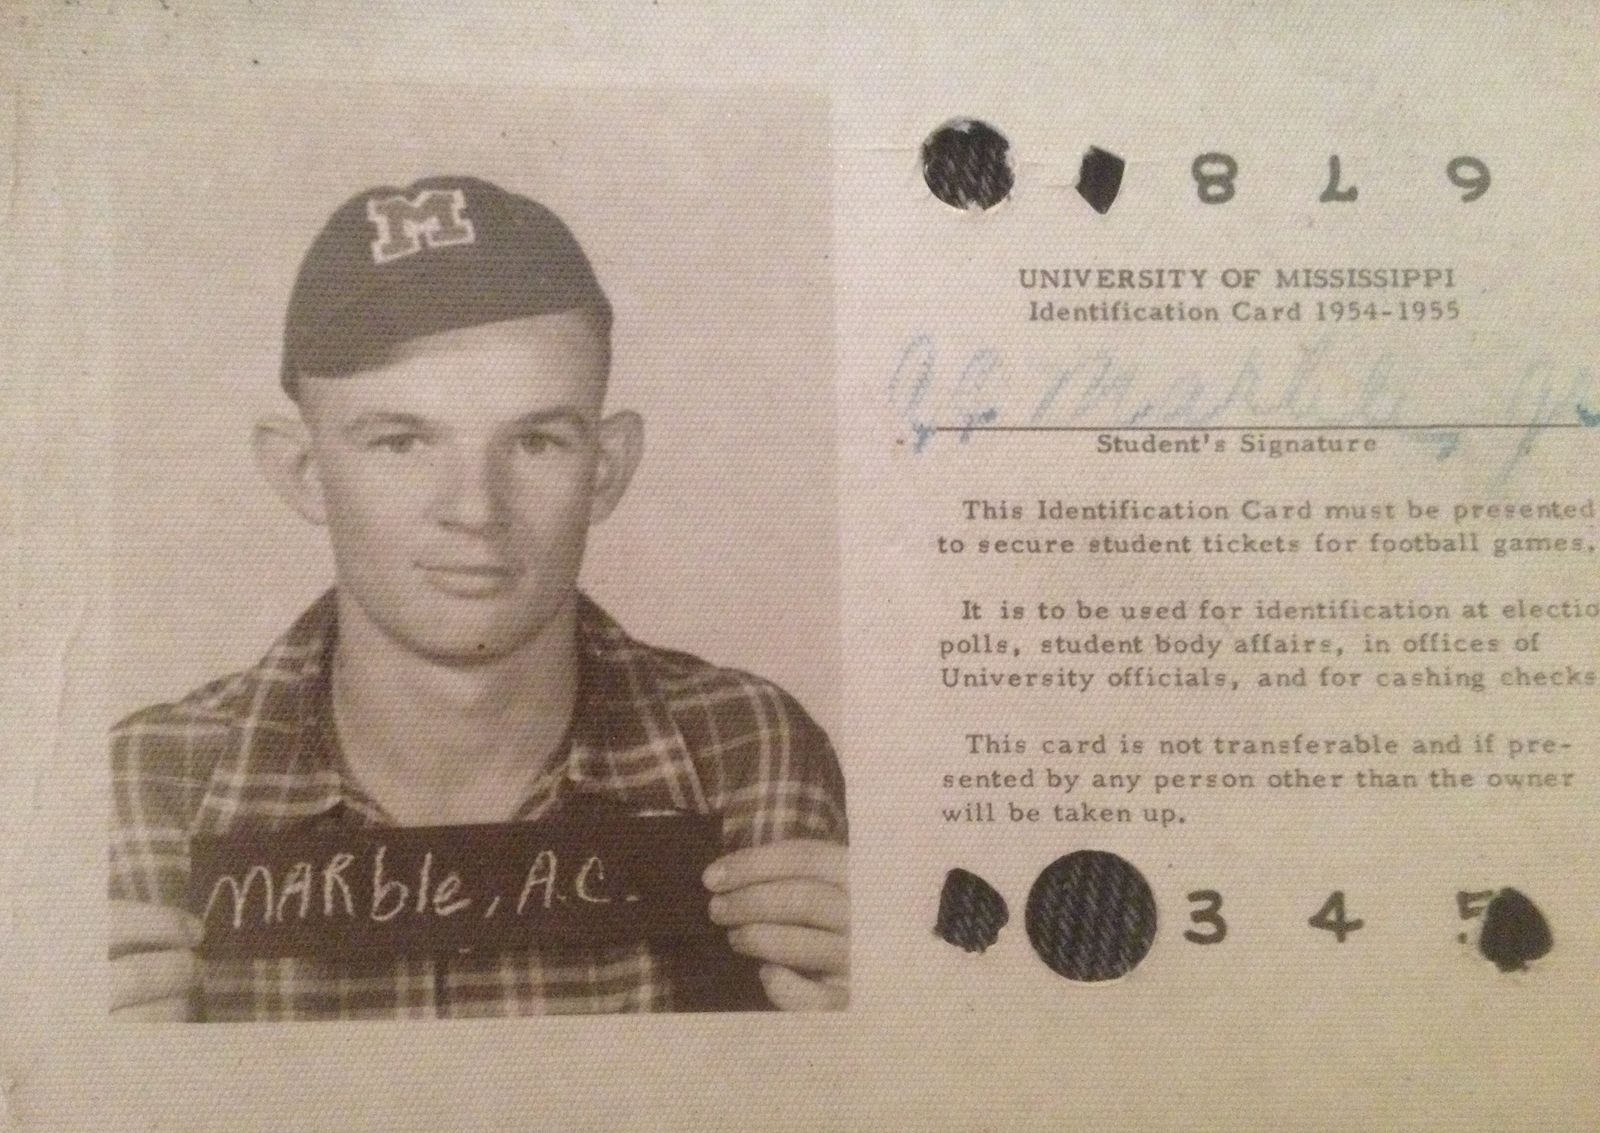 M
MARble, A.C.
8 7 6
UNIVERSITY OF MISSISSIPPI
Identification Card 1954-1955
A.C. Marble, Jr
Student's Signature
This Identification Card must be presented
to secure student tickets for football games.
It is to be used for identification at electio
polls, student body affairs, in offices of
University officials, and for cashing checks
This card is not transferable and if pre-
sented by any person other than the owner
will be taken up.
3 4 5